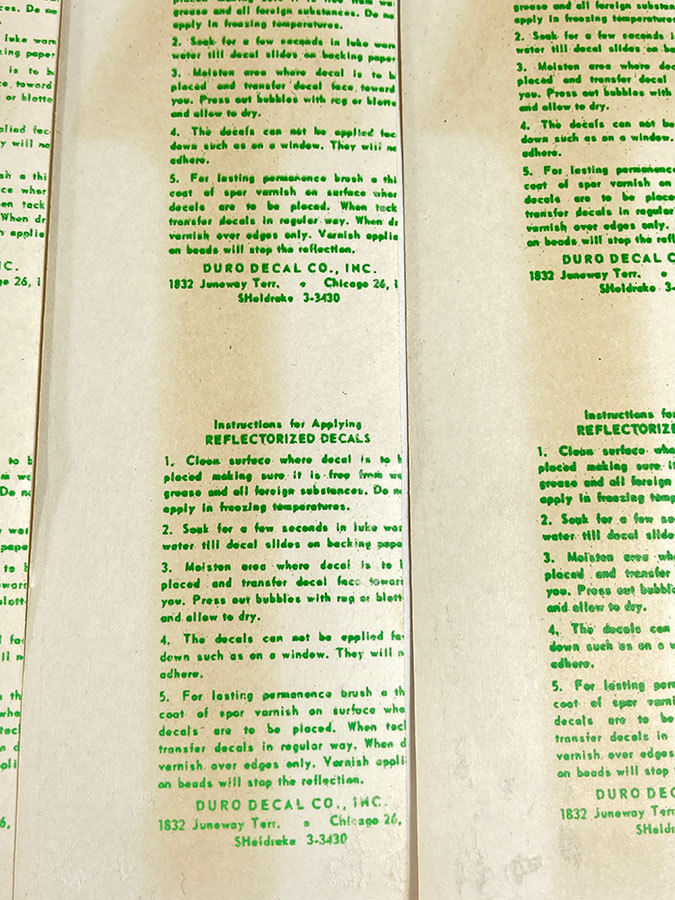 es. Do no
luke warm
king paper
is to b
ce toward
or blotte
plied fac
y will no
sh a thi
ce wher
en tack
When dr
h applie
NC.
go 26, I
to b
m wa
Do no
war
pape
to b
ward
blott
fac
ll n
a th
whe
tacl
n d
pli
6,
placed making sure it is free from wa
grease and all foreign substances. Do no
apply in freezing temperatures.
2. Soak for a few seconds in luke war
water till decal slides on backing paper
3. Moisten area where decal is to b
placed and transfer decal face toward
you. Press out bubbles with rag or blotte
and allow to dry.
4. The decals can not be applied fac
down such as on a window. They will no
adhere.
5. For lasting permanence brush a thi
coat of spar varnish on surface wher
decals are to be placed. When tack
transfer decals in regular way. When dr
varnish over edges only. Varnish applie
on beads will stop the reflection.
DURO DECAL CO., INC.
1832 Juneway Terr. • Chicago 26, I
SHeldrake 3-3430
Instructions for Applying
REFLECTORIZED DECALS
1. Clean surface where decal is to b
placed making sure it is free from wa
grease and all foreign substances. Do no
apply in freezing temperatures.
2. Soak for a few seconds in luke war
water till decal slides on backing pape
3. Moisten area where decal is to b
placed and transfer decal face towar
you. Press out bubbles with rag or blott
and allow to dry.
4. The decals can not be applied fa
down such as on a window. They will n
adhere.
5. For lasting permanence brush a th
coat of spar varnish on surface whe
decals are to be placed. When tacl
transfer decals in regular way. When d
varnish over edges only. Varnish appli
on beads will stop the reflection.
DURO DECAL CO., INC.
1832 Juneway Terr. • Chicago 26,
SHeldrake 3-3430
grease and all foreign substan
apply in freezing temperatures
2. Soak for a few seconds i
water till decal slides on ba
3. Moisten area where dec
placed and transfer decal
you. Press out bubbles with
and allow to dry.
4. The decals can not be
down such as on a window.
adhere.
5. For lasting permanence
coat of spar varnish on
decals are to be place
transfer decals in regular
varnish over edges only.
on beads will stop the refl
DURO DECAL C
1832 Juneway Terr. •
SHeldrake 3-
Instructions fo
REFLECTORIZE
1. Clean surface whe
placed making sure it
grease and all foreign
apply in freezing temp
2. Soak for a few se
water till decal slide
3. Moisten area wh
placed and transfer
you. Press out bubbl
and allow to dry.
4. The decals can
down such as on a w
adhere.
5. For lasting per
coat of spar varni
decals are to be
transfer decals in
varnish over edges
on beads will stop
DURO DE
1832 Juneway Terr
SHeldr